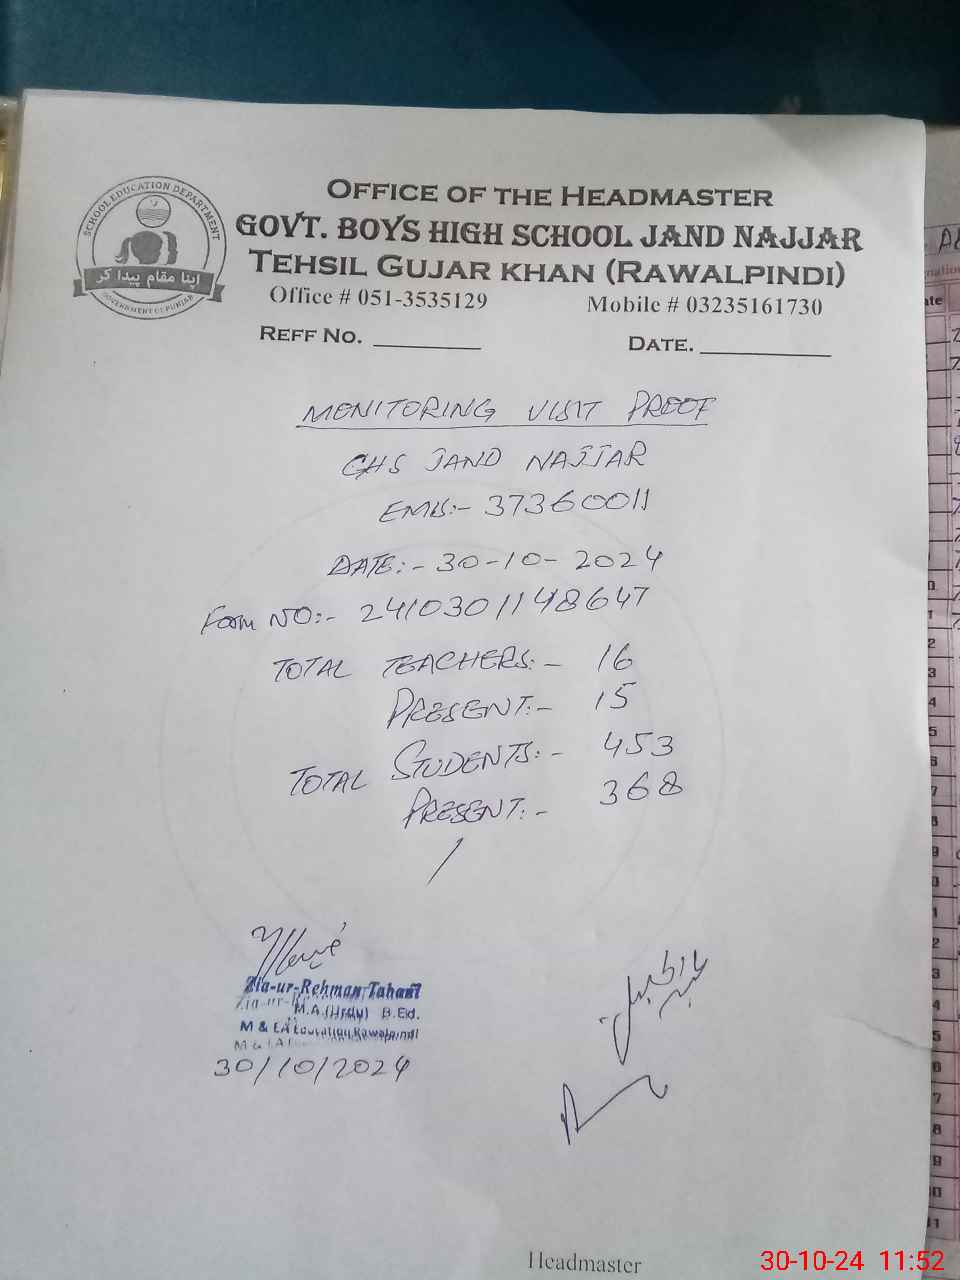 SCHOOL EDUCATION DEPARTMENT
اپنا مقام پیدا کر
GOVERNMENT OF PUNJAB
OFFICE OF THE HEADMASTER
GOVT. BOYS HIGH SCHOOL JAND NAJJAR
TEHSIL GUJAR KHAN (RAWALPINDI)
Office # 051-3535129 Mobile # 03235161730
REFF NO. DATE.
MONITORING VISIT PROOF
GHS JAND NAJJAR
EMIS:- 37360011
DATE:- 30-10-2024
Form NO:- 2410301148647
TOTAL TEACHERS:- 16
PRESENT:- 15
TOTAL STUDENTS:- 453
PRESENT:- 368
Zia-ur-Rehman
M.A.(Urdu) B.Ed.
M & EA Education Rawalpindi
30/10/2024
Headmaster
30-10-24 11:52